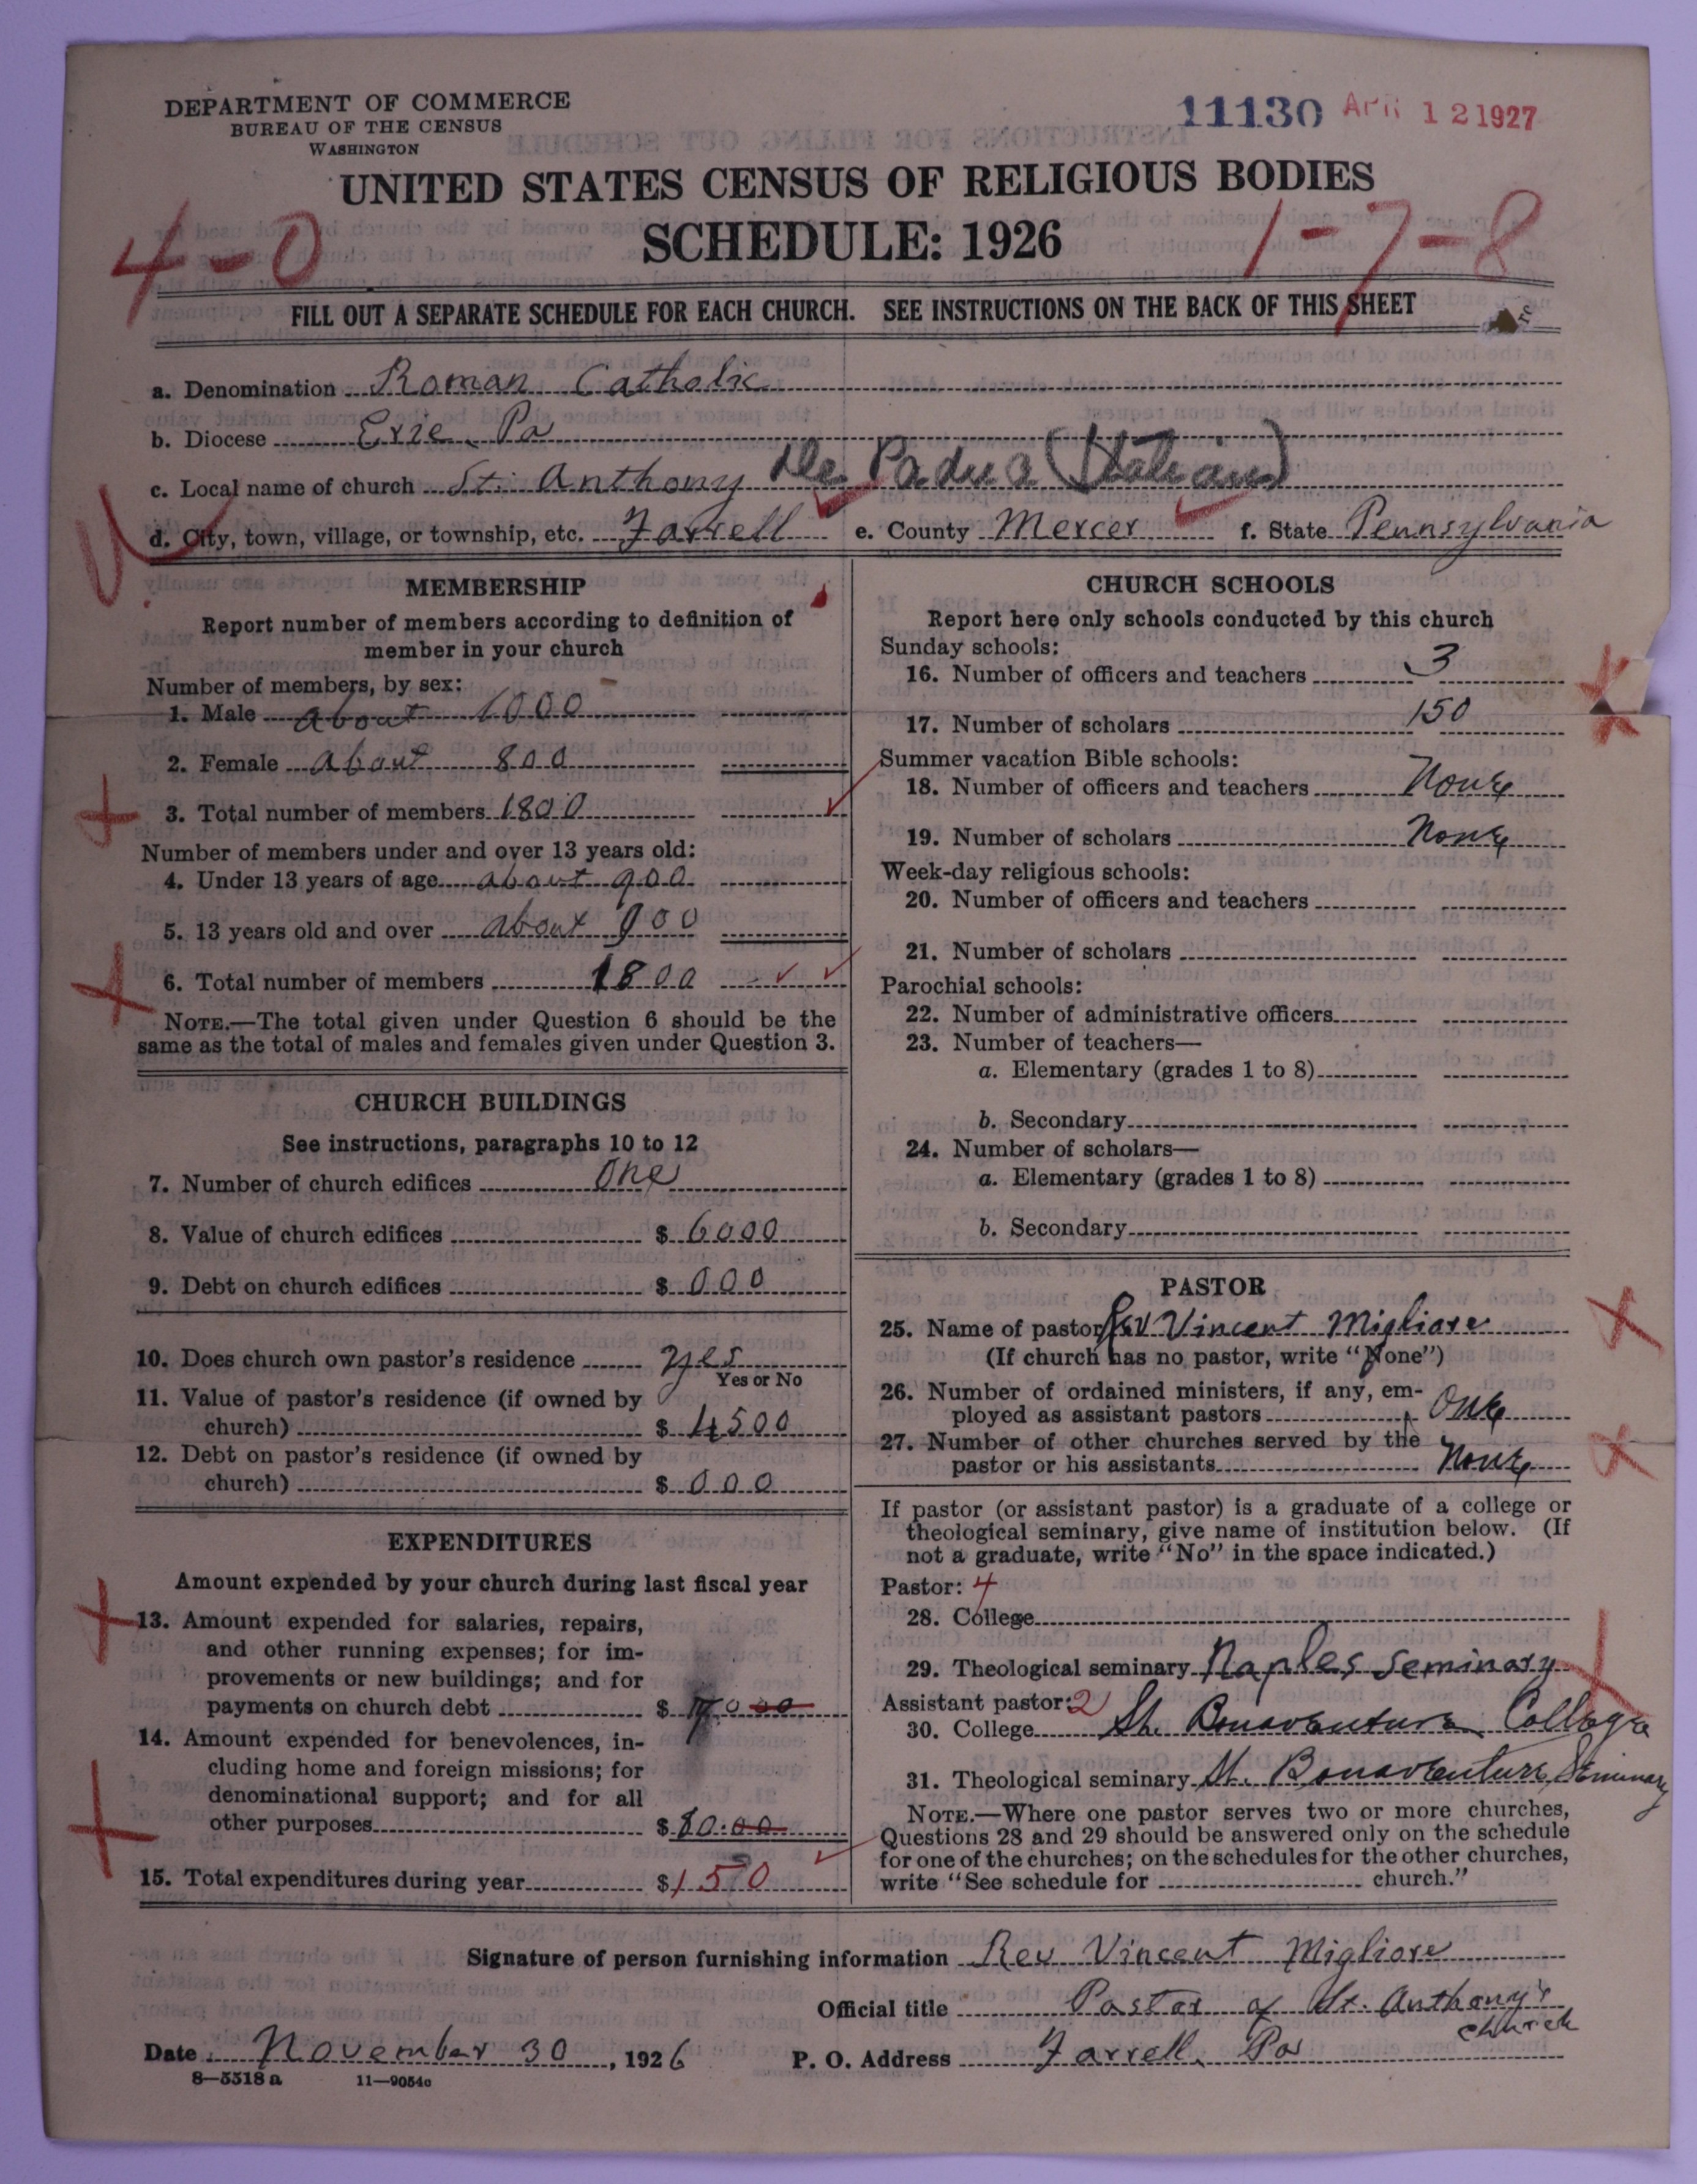 DEPARTMENT OF COMMERCE
BUREAU OF THE CENSUS
WASHINGTON
11130 APR 12 1927
UNITED STATES CENSUS OF RELIGIOUS BODIES
SCHEDULE: 1926
4-0
1-7-8
FILL OUT A SEPARATE SCHEDULE FOR EACH CHURCH. SEE INSTRUCTIONS ON THE BACK OF THIS SHEET
a. Denomination Roman Catholic
b. Diocese Erie Pa
c. Local name of church St. Anthony De Padua (Italian)
d. City, town, village, or township, etc. Farrell e. County Mercer f. State Pennsylvania
MEMBERSHIP
Report number of members according to definition of
member in your church
Number of members, by sex:
1. Male about 1000
2. Female about 800
3. Total number of members 1800
Number of members under and over 13 years old:
4. Under 13 years of age about 900
5. 13 years old and over about 900
6. Total number of members 1800
NOTE.—The total given under Question 6 should be the
same as the total of males and females given under Question 3.
CHURCH BUILDINGS
See instructions, paragraphs 10 to 12
7. Number of church edifices One
8. Value of church edifices $ 6000
9. Debt on church edifices $ 000
10. Does church own pastor's residence yes
Yes or No
11. Value of pastor's residence (if owned by
church) $ 4500
12. Debt on pastor's residence (if owned by
church) $ 000
EXPENDITURES
Amount expended by your church during last fiscal year
13. Amount expended for salaries, repairs,
and other running expenses; for im-
provements or new buildings; and for
payments on church debt $
14. Amount expended for benevolences, in-
cluding home and foreign missions; for
denominational support; and for all
other purposes $ 80.00
15. Total expenditures during year $ 150
CHURCH SCHOOLS
Report here only schools conducted by this church
Sunday schools:
16. Number of officers and teachers 3
17. Number of scholars 150
Summer vacation Bible schools:
18. Number of officers and teachers None
19. Number of scholars None
Week-day religious schools:
20. Number of officers and teachers
21. Number of scholars
Parochial schools:
22. Number of administrative officers
23. Number of teachers—
a. Elementary (grades 1 to 8)
b. Secondary
24. Number of scholars—
a. Elementary (grades 1 to 8)
b. Secondary
PASTOR
25. Name of pastor Rev Vincent Migliore
(If church has no pastor, write "None")
26. Number of ordained ministers, if any, em-
ployed as assistant pastors One
27. Number of other churches served by the
pastor or his assistants None
If pastor (or assistant pastor) is a graduate of a college or
theological seminary, give name of institution below. (If
not a graduate, write "No" in the space indicated.)
Pastor: 4
28. College
29. Theological seminary Naples Seminary
Assistant pastor: 2
30. College St. Bonaventure College
31. Theological seminary St. Bonaventure Seminary
NOTE.—Where one pastor serves two or more churches,
Questions 28 and 29 should be answered only on the schedule
for one of the churches; on the schedules for the other churches,
write "See schedule for church."
Signature of person furnishing information Rev Vincent Migliore
Official title Pastor of St. Anthony's
church
Date November 30, 1926 P. O. Address Farrell, Pa
8—5518 a 11—9054c